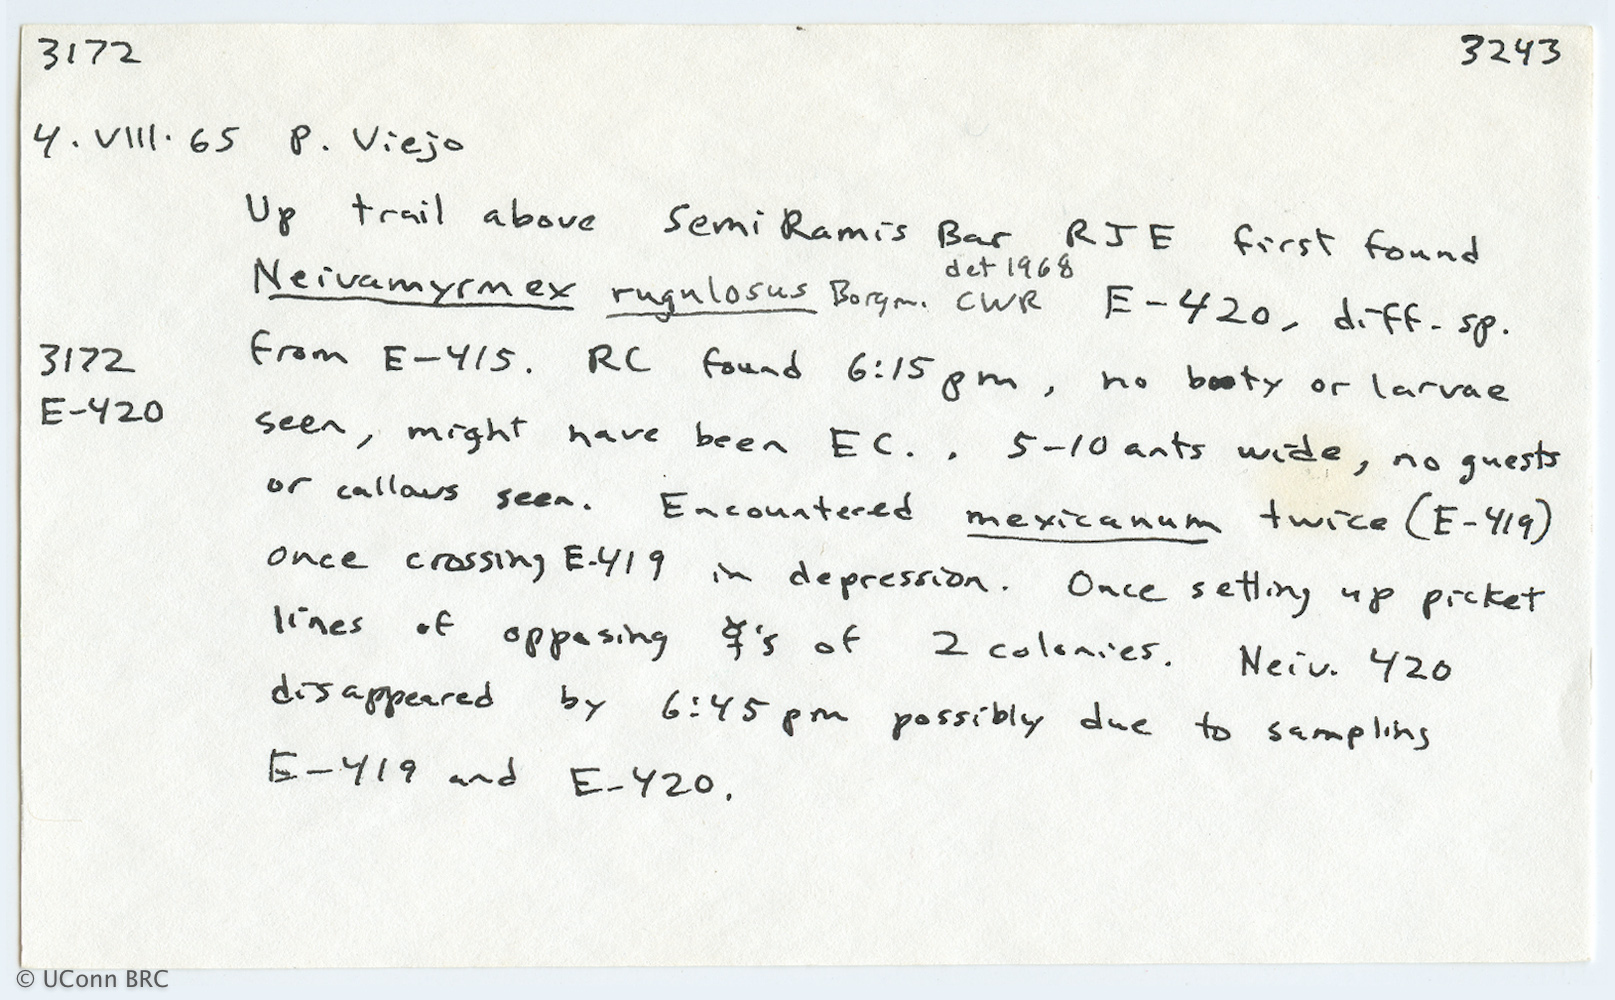 3172 3243
4.VIII.65 P. Viejo
Up trail above SemiRamis Bar RJE first found
Neivamyrmex rugulosus Borgm. det 1968 CWR E-420, diff. sp.
3172 from E-415. RC found 6:15 pm, no booty or larvae
E-420 seen, might have been EC.. 5-10 ants wide, no guests
or callows seen. Encountered mexicanum twice (E-419)
once crossing E-419 in depression. Once setting up picket
lines of opposing ☿'s of 2 colonies. Neiv. 420
disappeared by 6:45 pm possibly due to sampling
E-419 and E-420.
© UConn BRC